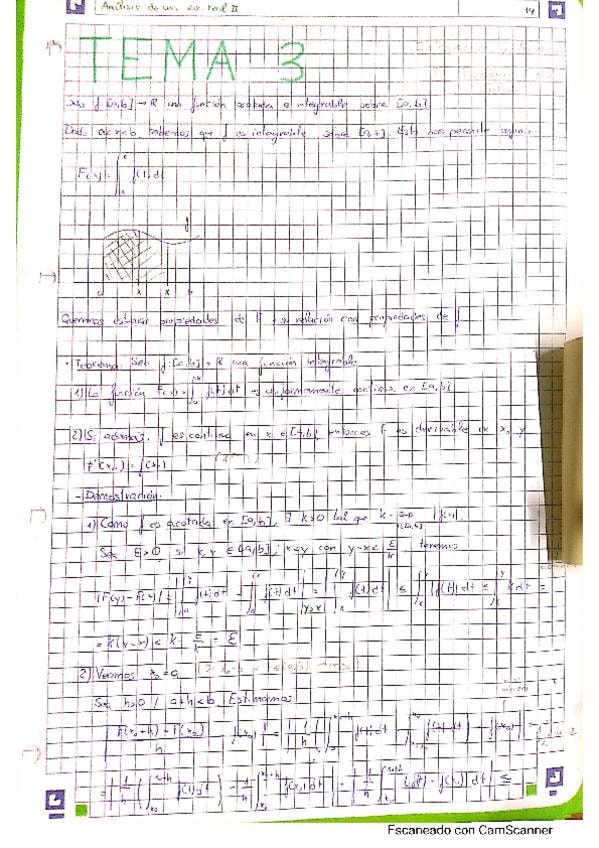 Análisis de una var. real II
TEMA 3
Sea f: [a,b] → R una función acotada e integrable sobre [a,b]
Dado a<x<b sabemos que f es integrable sobre [a,x]. Esto nos permite
F(x) = ∫_a^x f(t) dt
f
a x b
Queremos estudiar propiedades de F en relación con propiedades de f
· Teorema: Sea f: [a,b] → R una función integrable
1) La función F(x) = ∫_a^x f(t) dt es uniformemente continua en [a,b]
2) Si además, f es continua en x₀ ∈ [a,b] entonces F es derivable en x₀ y
F'(x₀) = f(x₀)
- Demostración:
1) Como f es acotada en [a,b], ∃ k>0 tal que k = sup |f(x)|
Sea ε>0, si x,y ∈ [a,b], x<y con y-x < ε/k tenemos
|F(y) - F(x)| = |∫_a^y f(t) dt - ∫_a^x f(t) dt| = |∫_x^y f(t) dt| ≤ ∫_x^y |f(t)| dt ≤ ∫_x^y k dt =
y>x
= k(y-x) < k · ε/k = ε
2) Veamos x₀ = a
Sea h>0 / a+h<b Estimamos
|(F(x₀+h) - F(x₀))/h - f(x₀)| =
= |1/h (∫_{x₀}^{x₀+h} f(t) dt) - 1/h ∫_{x₀}^{x₀+h} f(x₀) dt| = |1/h ∫_{x₀}^{x₀+h} (f(t) - f(x₀)) dt| ≤
Escaneado con CamScanner